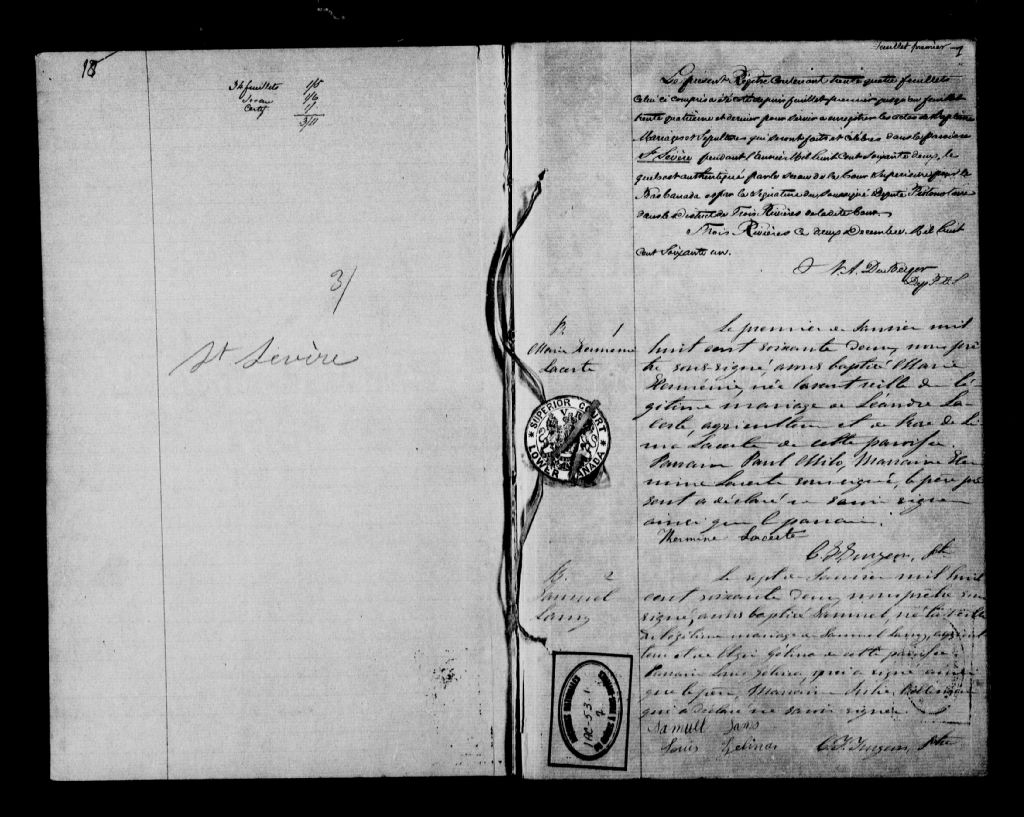 18
34 feuillets 1/5
Sceau 1/6
Certif 1/
3/11
3/
St Sévère
feuillet premier
Le présent Régistre contenant trente quatre feuillets
celui ci compris a été coté depuis feuillet premier jusqu'au feuillet
trente quatrième et dernier pour servir a enregistrer les actes de Baptêmes
Mariages et Sépultures qui seront faits et célébrés dans la paroisse
St Sévère pendant l'année Mil huit Cent Soixante deux, le
quel est authentiqué par le Sceau de la Cour Supérieure pour le
Bas Canada et par la Signature du Soussigné Député Protonotaire
dans le District de Trois Rivières de la dite Cour.
Trois Rivières ce deux Décembre Mil huit
cent Soixante un.
Dep P.C.S
B. 1
Marie Herménie
Lacerte
Le premier de Janvier mil
huit cent soixante deux, nous prê-
tre sous-signé, avons baptisé Marie
Herménie, née l'avant veille de lé-
gitime mariage de Léandre La-
certe, agriculteur et de Rose de Li-
ma Lacerte de cette paroisse.
Parrain Paul Milo, Marraine Her-
mine Lacerte soussignée, le père pré-
sent a déclaré ne savoir signer
ainsi que le parrain.
Hermine Lacerte
Ptre
SUPERIOR COURT
LOWER CANADA
B. 2
Samuel
Lamy
Le sept de Janvier mil huit
cent soixante deux, nous prêtre sous-
signé, avons baptisé Samuel, né la veille
de légitime mariage de Samuel Lamy, agricul-
teur et de Gélina de cette paroisse.
Parrain Louis Gélina, qui a signé ainsi
que le père, Marraine Julie
qui a déclaré ne savoir signer.
Samuell
Louis Gelinas
Ptre